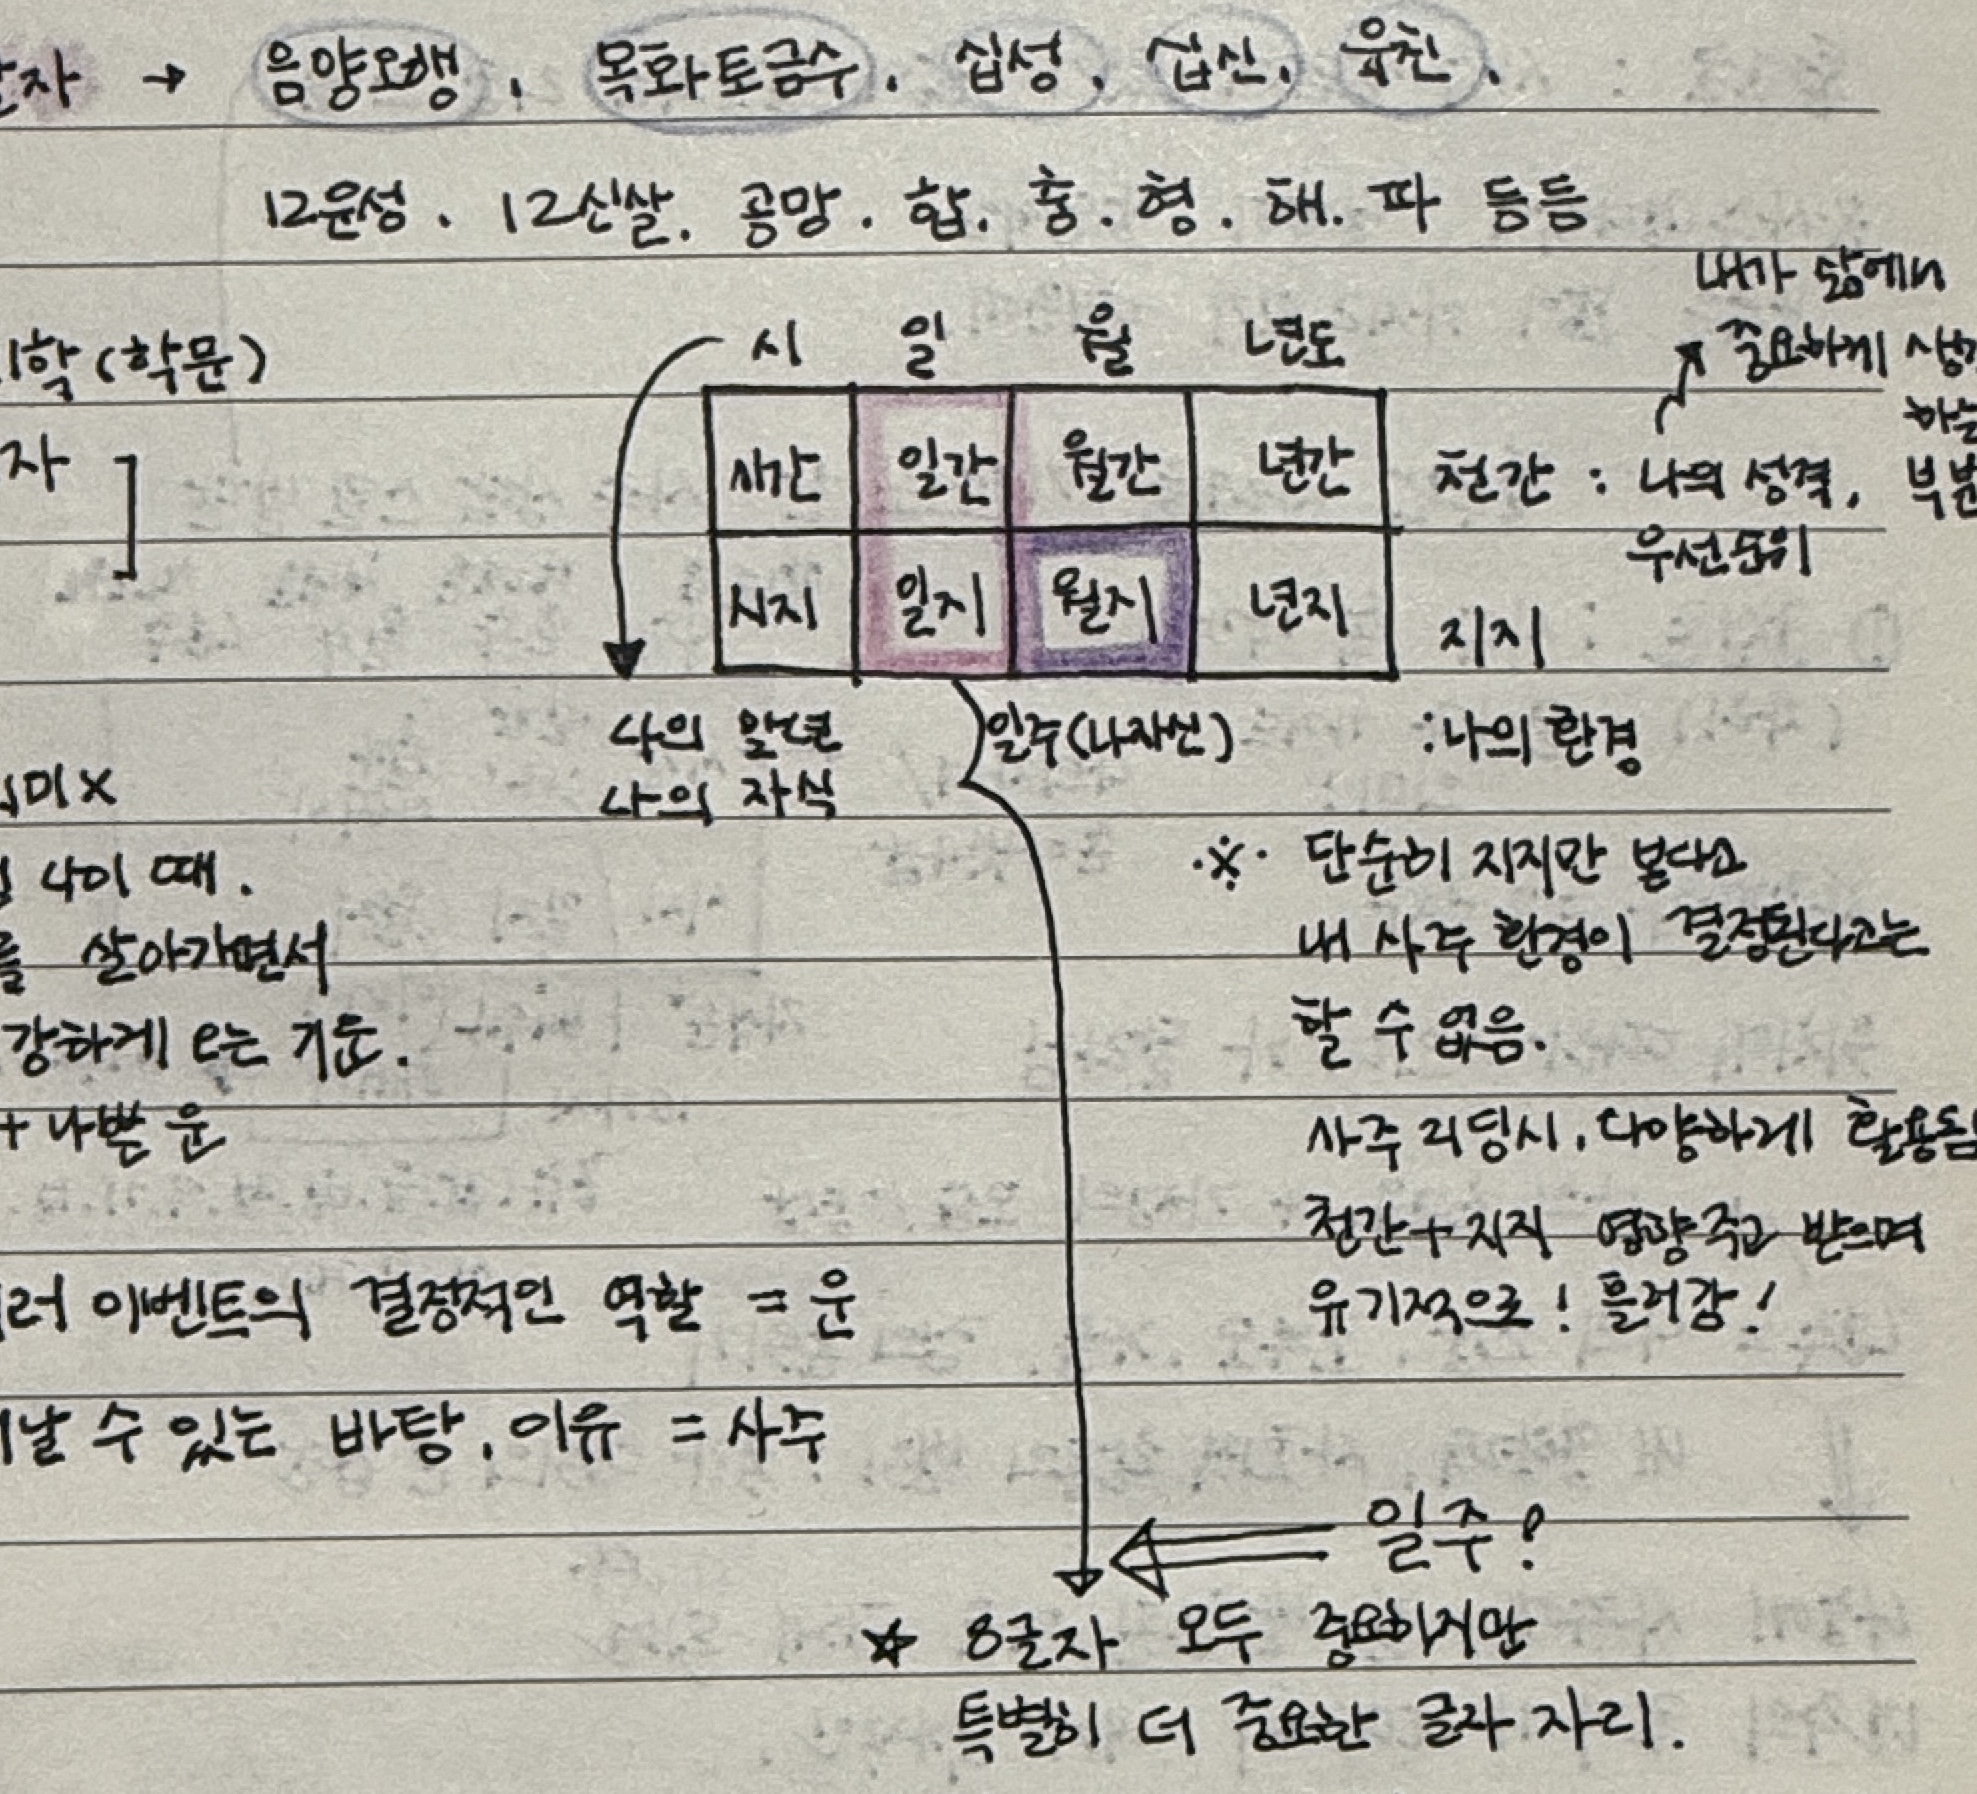 자 → 음양오행, 목화토금수, 십성, 십신, 육친,
12운성. 12신살. 공망. 합. 충. 형. 해. 파 등등
내가 삶에서
시 일 월 년도
중요하게
학(학문)
자 ]
시간 일간 월간 년간 천간 : 나의 성격,
우선순위
시지 일지 월지 년지 지지
나의 말년 일주(나자신) :나의 환경
나의 자식
미X
※ 단순히 지지만 본다고
나이 때.
내 사주 환경이 결정된다고는
를 살아가면서
할 수 없음.
강하게 e는 기운.
사주 리딩시, 다양하게 활용됨
+ 나쁜 운
천간+지지 영향 주고 받으며
러 이벤트의 결정적인 역할 = 운
유기적으로! 흘러감!
날 수 있는 바탕, 이유 = 사주
⇐ 일주!
☆ 8글자 모두 중요하지만
특별히 더 중요한 글자 자리.